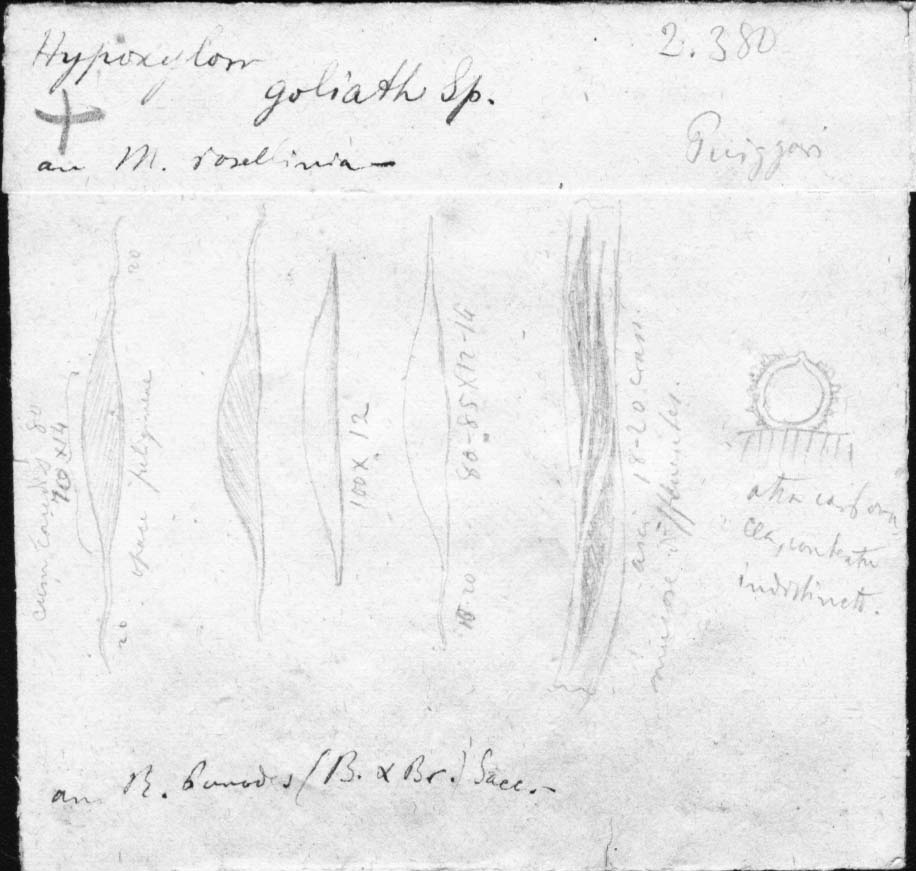 Hypoxylon
2.380
goliath Sp.
an M. rosellinia —
Puiggari
20
80
70 X 14
opace
20
100 X 12
80-85 X 12-14
18-20
asci 18-20 crass.
mucose diffluentes.
atra carbona-
cea, contextu
indistincto.
an R. bunodes (B. & Br.) Sacc. –